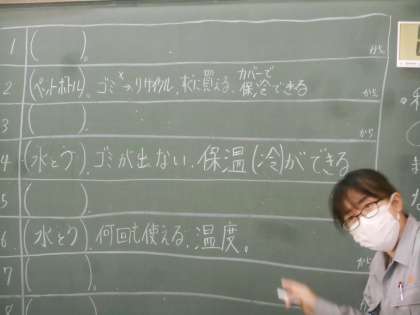 1 ( )。 から
2 (ペットボトル)。ゴミ→リサイクル,すぐに買える,カバーで保冷できる から
3 ( )。 から
4 (水とう)。ゴミが出ない,保温(冷)ができる
5 ( )。
6 (水とう)。何回も使える,温度。
7 ( )。 か
8 (